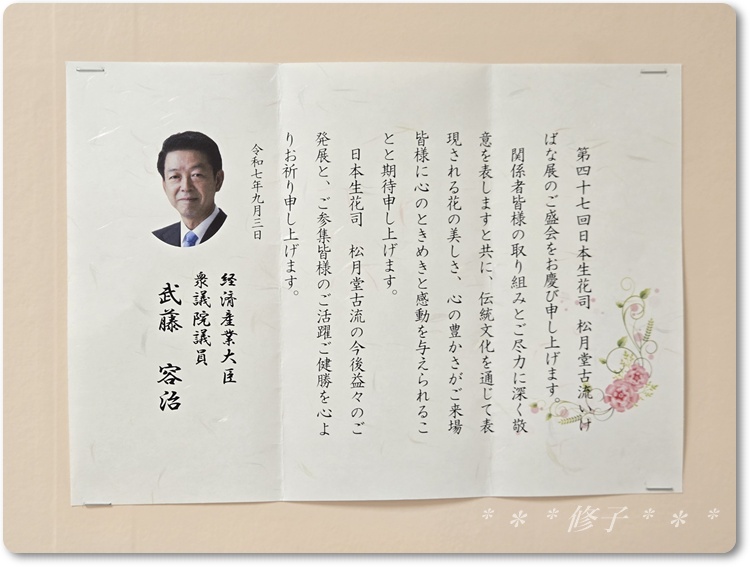 第四十七回日本生花司　松月堂古流いけ
ばな展のご盛会をお慶び申し上げます。
関係者皆様の取り組みとご尽力に深く敬
意を表しますと共に、伝統文化を通じて表
現される花の美しさ、心の豊かさがご来場
皆様に心のときめきと感動を与えられるこ
とと期待申し上げます。
日本生花司　松月堂古流の今後益々のご
発展と、ご参集皆様のご活躍ご健勝を心よ
りお祈り申し上げます。
令和七年九月三日
経済産業大臣
衆議院議員
武藤　容治
＊＊＊修子＊＊＊